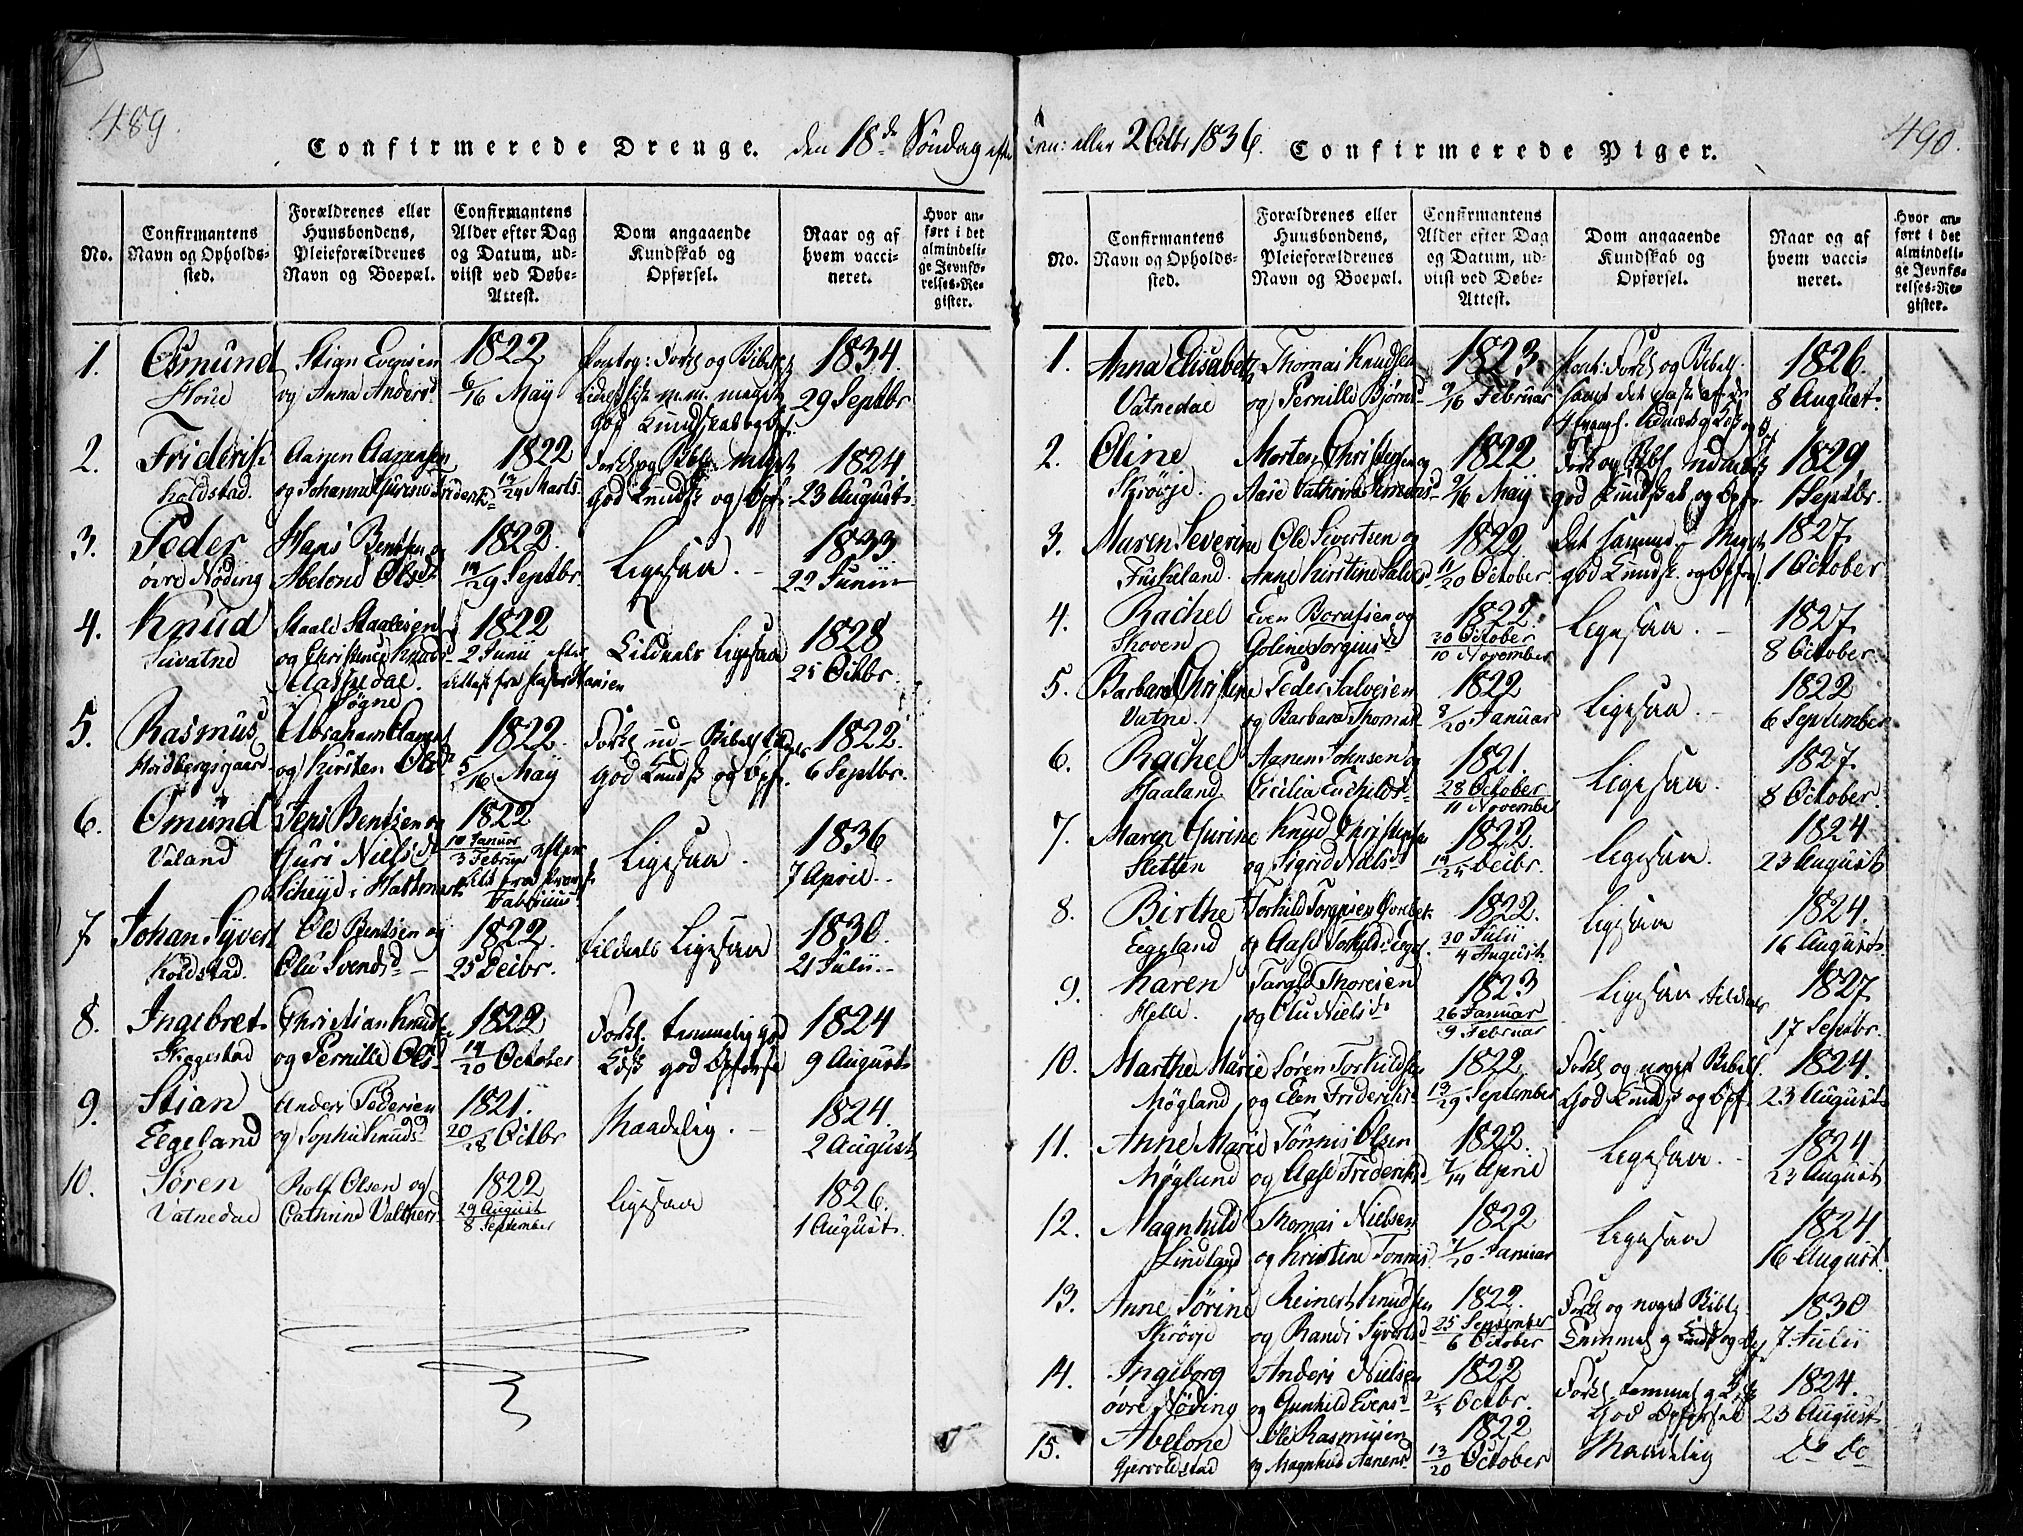 489.
Confirmerede Drenge. den 18de Søndag efter
No.
Confirmantens Navn og Opholdssted.
Forældrenes eller Huusbondens, Pleieforældrenes Navn og Boepæl.
Confirmantens Alder efter Dag og Datum, udviist ved Døbe-Attest.
Dom angaaende Kundskab og Opførsel.
Naar og af hvem vaccineret.
Hvor anført i det almindelige Jevnførelses-Register.
1. Osmund Stian Evensen 1822 Forkl og Bibel 1834.
Houe og Anna Andersd 6/16 May meget 29 Septbr
God Kundskab og Opf.
2. Friderik Aanen Aanensen 1822 Forkl og Bibel meget 1824.
Koldstad. og Johanne Gurine Friderksd 17/24 Marts. God Kundsk og Opf. 23 August
3. Peder Hans Bentsen og 1822. Ligesaa. 1833
øvre Nøding Abelone Olsd 19/29 Septbr. 22 Junii
4. Knud Staale Staalesen 1822 Ligesaa 1828
og Christence Knudsd 2 Junii efter 25 Octbr.
i Søgne
5. Rasmus Abraham 1822. Forkl Bibel 1822.
og Kirsten Olsd 5/16 May God Kundsk og Opf. 6 Septbr.
6. Omund Jens Bentsen og 1822 Ligesaa. 1836
Valand Guri Nielsd 10 Januar/3 Februar 7 April
7. Johan Syvert Ole Bentsen og 1822. Ligesaa 1830.
Koldstad. Olu Svendsd 25 Decbr. 21 Julii
8. Ingebret Christian Knudsen 1822 Forkl. temmelig god 1824
Skagestad og Pernille Olsd 14/20 October god Opførsel 9 August
9. Stian Anders Pedersen 1821. Maadelig. 1824.
Eegeland og Sophie Knudsd 20/28 Octbr 2 August
10. Søren Rolf Olsen og 1822 Ligesaa 1826.
Vatnedae Cathrine 29 August/8 September 1 August
490.
Trin: eller 2 Octbr 1836. Confirmerede Piger.
No.
Confirmantens Navn og Opholdssted.
Forældrenes eller Huusbondens, Pleieforældrenes Navn og Boepæl.
Confirmantens Alder efter Dag og Datum, udviist ved Døbe-Attest.
Dom angaaende Kundskab og Opførsel.
Naar og af hvem vaccineret.
Hvor anført i det almindelige Jevnførelses-Register.
1. Anna Elisabeth Thomas Knudsen 1823. Forkl og Bibel 1826.
Vatnedae og Pernille Bjørnsd 9/16 Februar 8 August.
2. Oline Morten Christensen og 1822 Forkl og Bibl 1829.
Skrøvje. Aase Cathrine Simonsd 9/16 May god Kundskab og Opf. 1 Septbr.
3. Maren Severine Ole Sivertsen og 1822 Det samme 1827.
Fuskeland. Anne Kirstine Salvesd 11/20 October god Kundsk. og Opf. 1 October
4. Rachel Even 1822. Ligesaa. 1827.
Skoven 30 October/10 November 8 October
5. Barbara Christine Peder Salvesen 1822 Ligesaa. 1822
Vatne. og Barbara Thomasd 8/20 Januar 6 September
6. Rachel Aanen Johnsen og 1821. Ligesaa. 1827.
Haaland Cecilia 28 October/11 November 8 October.
7. Maren Gurine Knud Christensen 1822. Ligesaa. 1824
Sletten og Sigrid Nielsd 19/25 Decbr. 23 August
8. Birthe Torkild 1822. Ligesaa 1824.
Eegeland og Aase Torkildsd 30 Julii/4 August 16 August
9. Karen Targld Thoresen 1823 Ligesaa 1827.
Helle. og Olu Nielsd 26 Januar/9 Februar 17 Septbr.
10. Marthe Marie Søren Torkildsen 1822. Forkl og noget Bibel. 1824.
Møgland og Elen Frideriksd 13/29 September God Kundsk og Opf. 23 August
11. Anne Marie Tønnis Olsen 1822. Ligesaa. 1824
Møglund og Aase Frideriksd 7/14 April 23 August
12. Magnhild Thomas Nielsen 1822 Ligesaa 1824
Lindland og Kirstine Tønnisd 7/20 Januar 16 August.
13. Anne Sørine Reinert Knudsen 1822. Forkl og noget Bibl. 1830
Skrøvje og Randi Syvertsd 25 September/6 October 7. Julii
14. Ingeborg Anders Nielsen 1822 Forkl. 1824.
øvre Nøding og Gunhild Evensd Octbr. God Opførsel 23 August
15. Abelone Ole Rasmusen 1822 Maadelig Do Do
Gjervoldstad og Magnhild Aanensd 13/20 October